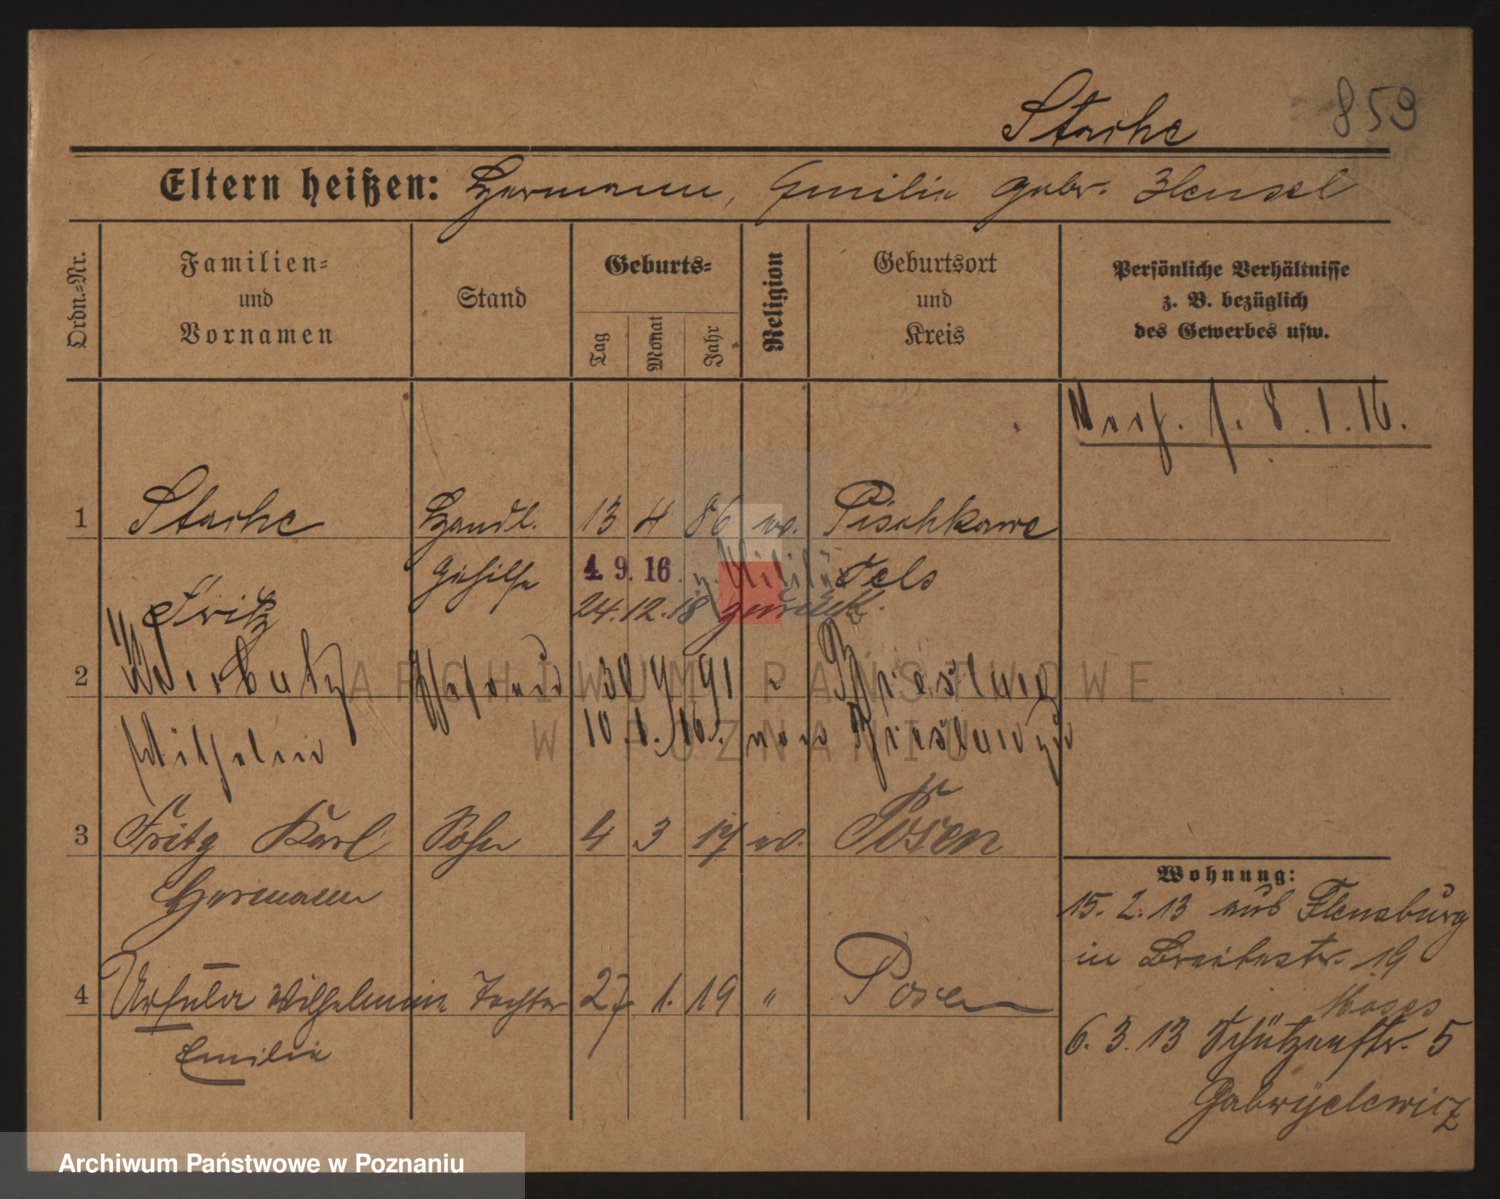 Stache 859
Eltern heißen: Hermann, Emilie gebr. Hensel
Ordn.=Nr.
Familien=
und
Vornamen
Stand
Geburts=
Tag
Monat
Jahr
Religion
Geburtsort
und
Kreis
Persönliche Verhältnisse
z. B. bezüglich
des Gewerbes usw.
8.1.16.
1 Stache Handl. 13 4 86 ev. Pischkawe
Gehilfe 4. 9. 16 z. Militär Oels
Fritz 24.12.18 zurück.
2 30 4 91
Wilhelmine 10.1.16.
3 Fritz Karl Sohn 4 3 17 ev. Posen
Hermann
4 Ursula Wilhelmine Tochter 27. 1. 19 " Posen
Emilie
Wohnung:
15. 2. 13 aus Flensburg
in Breitestr. 19
Moses
6. 3. 13 Schützenstr. 5
Gabryelewicz
ARCHIWUM PAŃSTWOWE
W POZNANIU
Archiwum Państwowe w Poznaniu